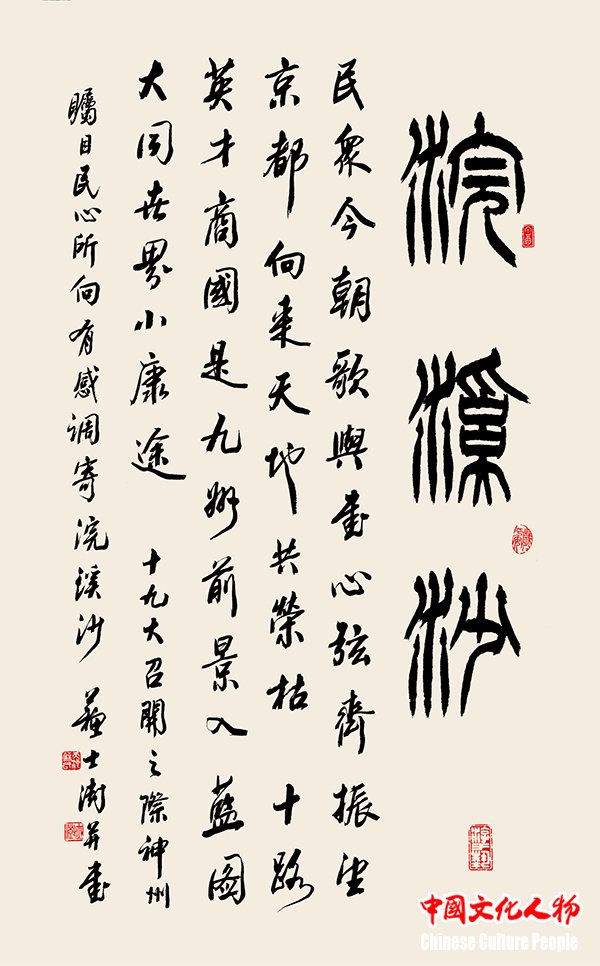 浣溪沙
民衆今朝歌與書心弦齊振望
京都向來天地共榮枯 十路
英才商國是九州前景入藍圖
大同世界小康途 十九大召開之際神州
矚目民心所向有感調寄浣溪沙 蘇士澍并書
中國文化人物
Chinese Culture People